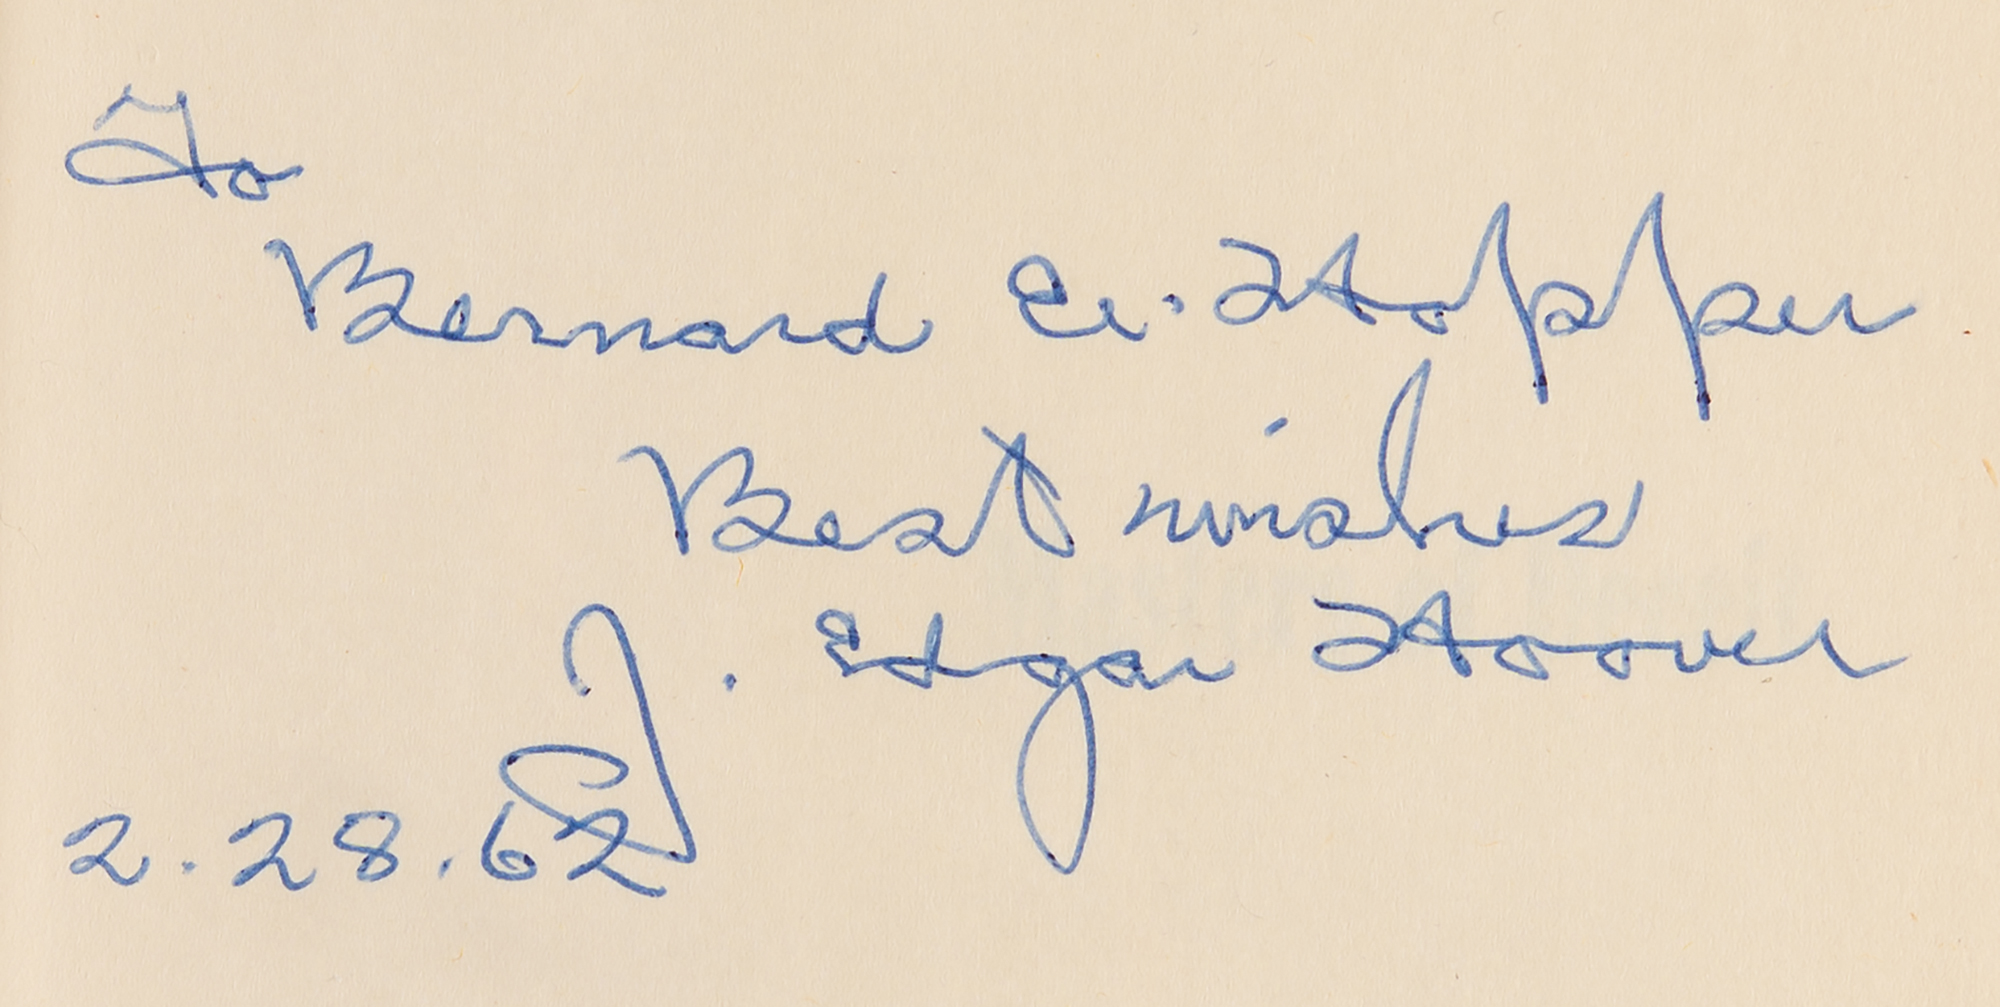 To
Bernard E. Hopper
Best wishes
J. Edgar Hoover
2.28.62